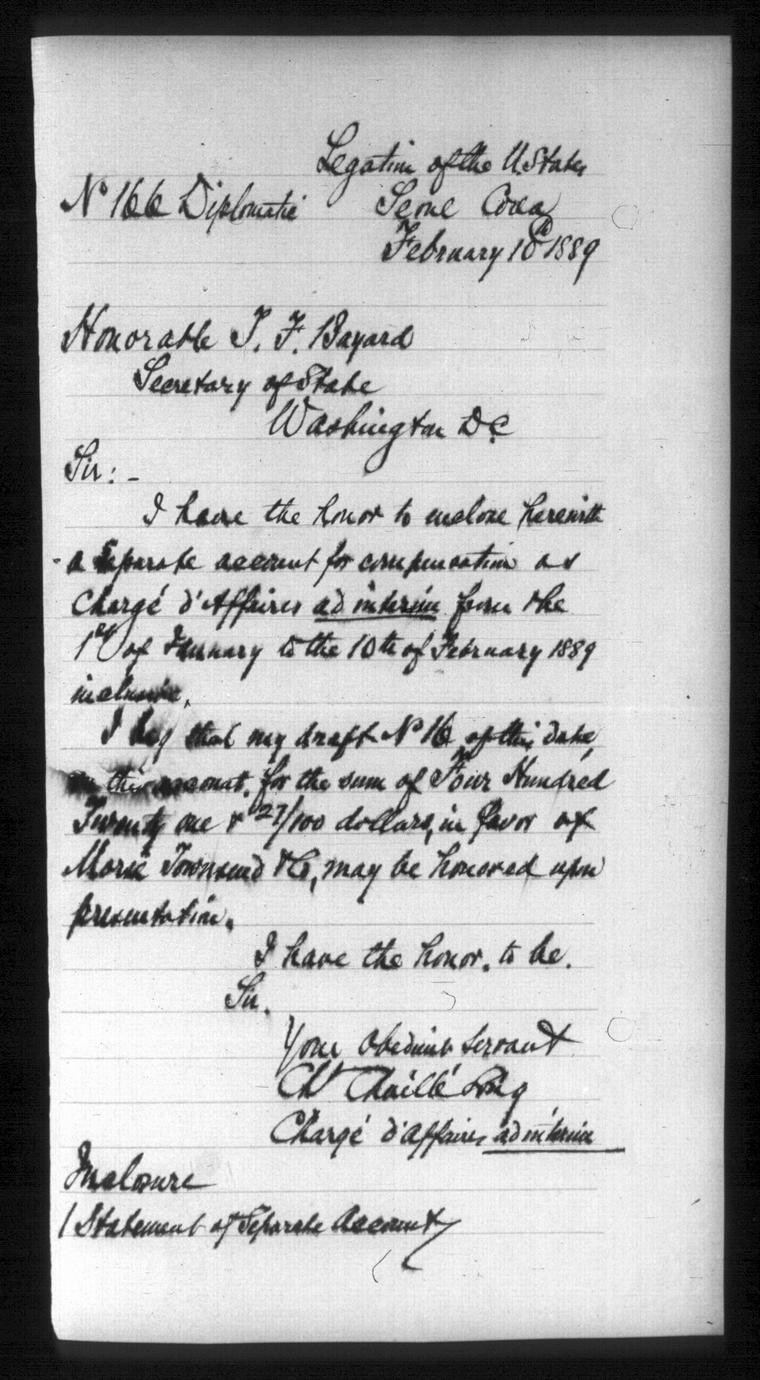 Legation of the U. States
Nº 166 Diplomatic Seoul Corea
February 10th 1889
Honorable T. F. Bayard
Secretary of State
Washington D.C.
Sir: -
I have the honor to enclose herewith
a separate account for compensation as
Chargé d'Affaires ad interim from the
1st of January to the 10th of February 1889
inclusive.
I beg that my draft Nº 16 of this date,
on this account, for the sum of Four Hundred
Twenty one & 27/100 dollars, in favor of
Morse Townsend & Co, may be honored upon
presentation.
I have the honor, to be.
Sir.
Your obedient servant
Ch. Chaillé Long
Chargé d'affaires ad interim
Inclosure
1 Statement of Separate Account